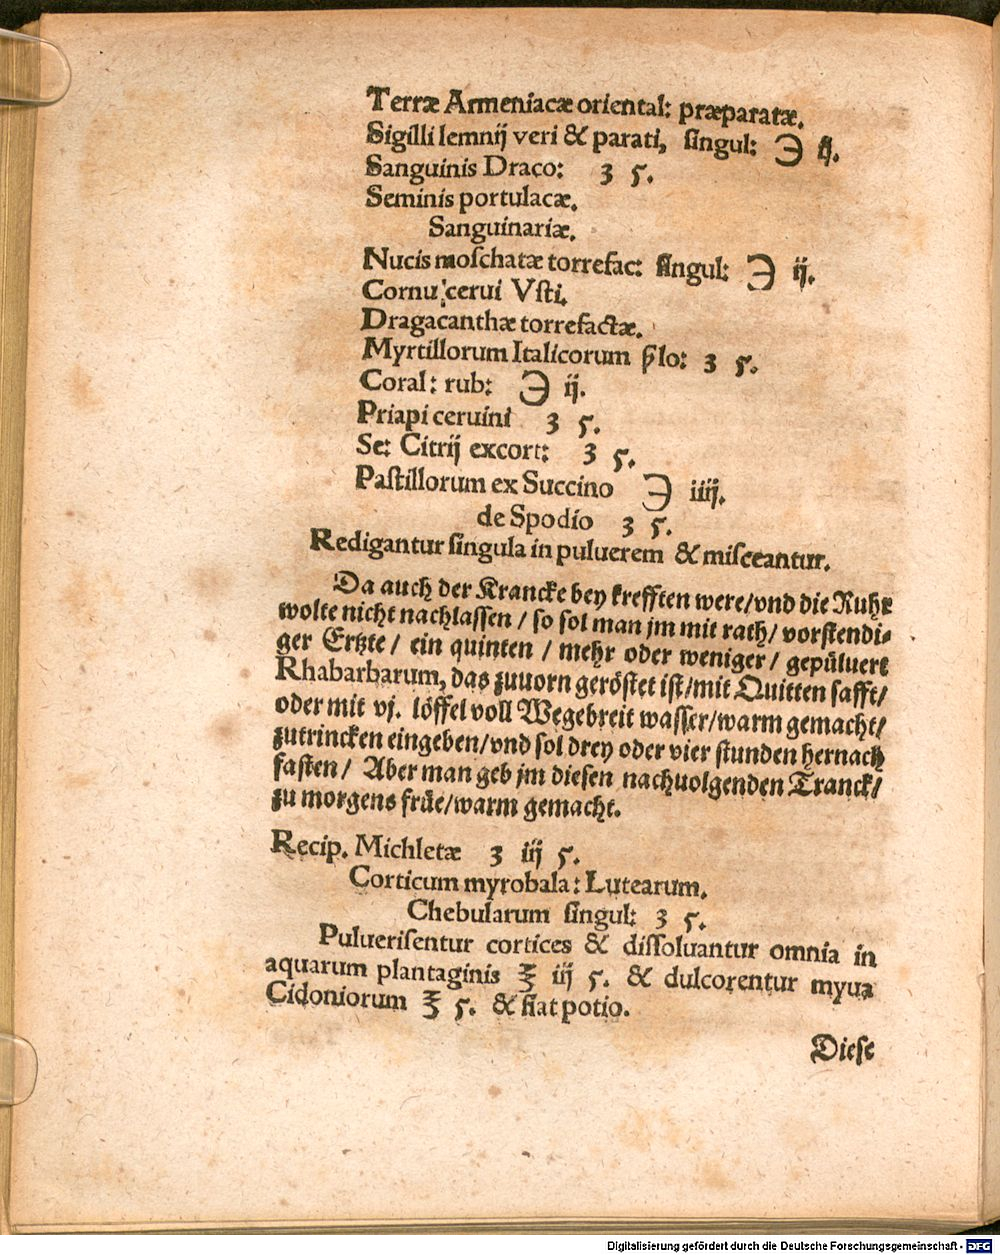 Terræ Armeniacæ oriental: præparatæ.
Sigilli lemnij veri & parati, ſingul: ℈ ſj.
Sanguinis Draco: ʒ 5.
Seminis portulacæ.
Sanguinariæ.
Nucis moſchatæ torrefac: ſingul: ℈ ij.
Cornu cerui Vſti.
Dragacanthæ torrefactæ.
Myrtillorum Italicorum p̱lo: ʒ 5.
Coral: rub: ℈ ij.
Priapi ceruini ʒ 5.
Se: Citrij excort: ʒ 5.
Paſtillorum ex Succino ℈ iiij.
de Spodio ʒ 5.
Redigantur ſingula in puluerem & miſceantur.
Da auch der Krancke bey krefften were/vnd die Ruhr
wolte nicht nachlaſſen / ſo ſol man jm mit rath/ vorſtendi⸗
ger Ertzte / ein quinten / mehr oder weniger / gepülvert
Rhabarbarum, das zuuorn geröſtet iſt/mit Quitten ſafft/
oder mit vj. löffel voll Wegebreit waſſer/warm gemacht/
zutrincken eingeben/vnd ſol drey oder vier ſtunden hernach
faſten / Aber man geb jm dieſen nachuolgenden Tranck/
zu morgens früe/warm gemacht.
Recip. Michletæ ʒ iij 5.
Corticum myrobala: Lutearum.
Chebularum ſingul: ʒ 5.
Pulueriſentur cortices & diſſoluantur omnia in
aquarum plantaginis ℥ iij 5. & dulcorentur myua
Cidoniorum ℥ 5. & fiat potio.
Dieſe
Digitalisierung gefördert durch die Deutsche Forschungsgemeinschaft - DFG